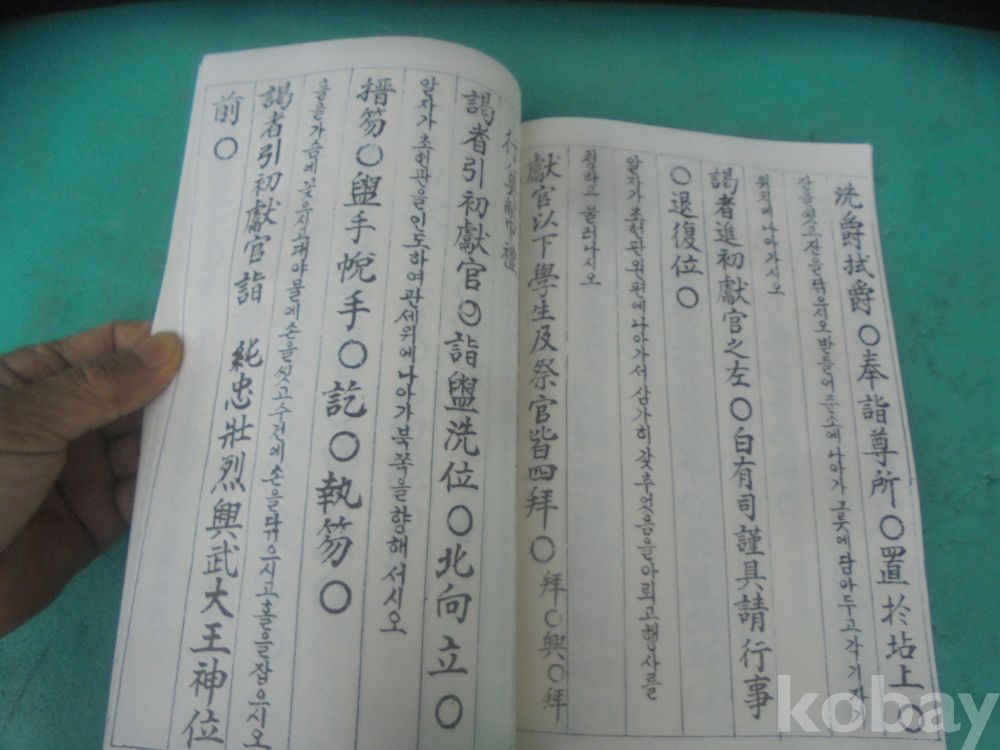 洗爵拭爵〇奉詣尊所〇置於坫上〇
잔을씻고잔을닦으시오받들어준소에나아가그릇에담아두고각기자
위치에나아가시오
謁者進初獻官之左〇白有司謹具請行事
〇退復位〇
알자가초헌관왼편에나아가서삼가히갖추었음을아뢰고행사를
청하고물러나시오
獻官以下學生及祭官皆四拜〇拜〇興〇拜
行奠幣禮
謁者引初獻官〇詣盥洗位〇北向立〇
알자가초헌관을인도하여관세위에나아가북쪽을향해서시오
搢笏〇盥手帨手〇訖〇執笏〇
홀을가슴에꽂으시고대야물에손을씻고수건에손을닦으시고홀을잡으시오
謁者引初獻官詣 純忠壯烈興武大王神位
前〇
kobay